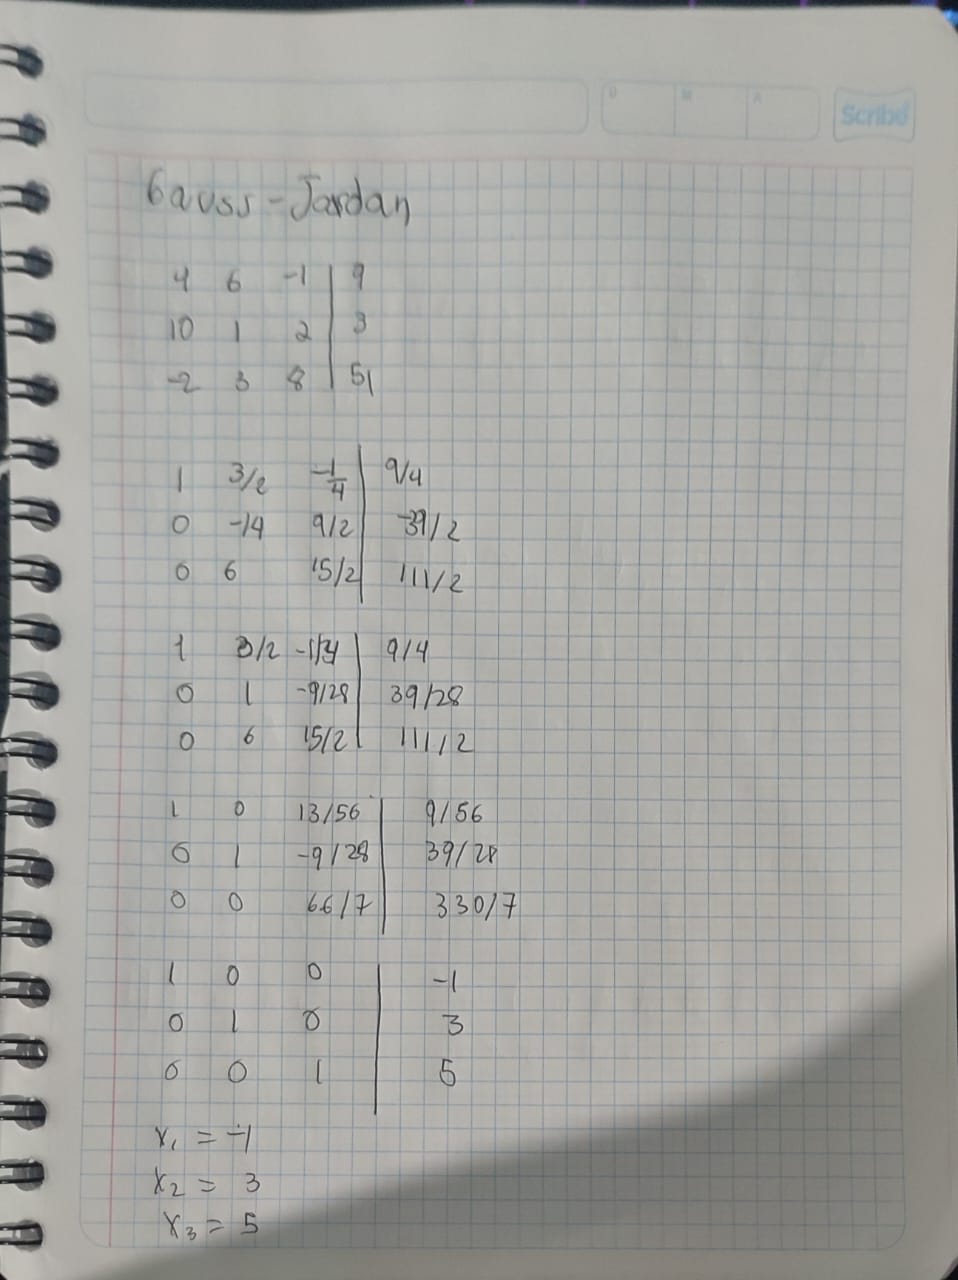 D M A Scribe
Gauss-Jordan
4 6 -1 | 9
10 1 2 | 3
-2 3 8 | 51
1 3/2 -1/4 | 9/4
0 -14 9/2 | -39/2
0 6 15/2 | 111/2
1 3/2 -1/4 | 9/4
0 1 -9/28 | 39/28
0 6 15/2 | 111/2
1 0 13/56 | 9/56
0 1 -9/28 | 39/28
0 0 66/7 | 330/7
1 0 0 | -1
0 1 0 | 3
0 0 1 | 5
x₁ = -1
x₂ = 3
x₃ = 5